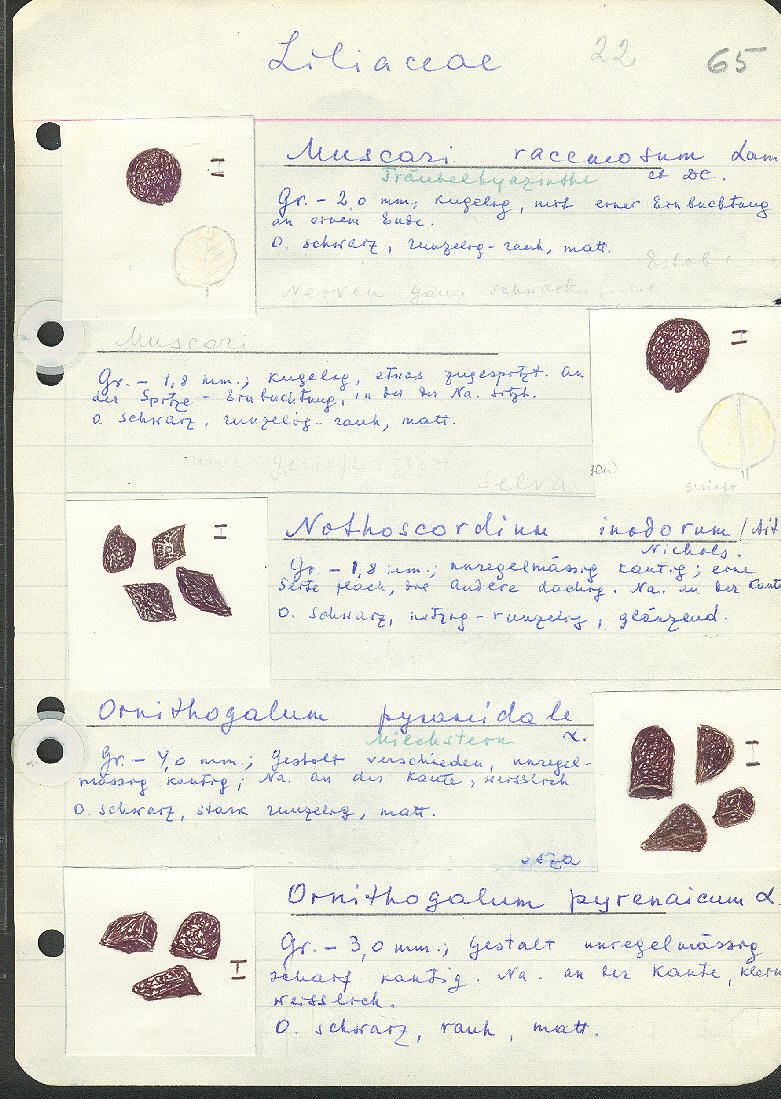 Liliaceae 22 65
Muscari racemosum Lam
et DC.
Träubelhyazinthe
Gr. - 2,0 mm; kugelig, mit einer Einbuchtung
an einem Ende.
O. schwarz, runzelig-rauh, matt.
Nerven schwach
Muscari
Gr. - 1,8 mm.; kugelig, etwas zugespitzt. An
der Spitze - Einbuchtung, in der der Na. sitzt.
O. schwarz, runzelig-rauh, matt.
Selva
gerieft
Nothoscordium inodorum /Ait
Nichols.
Gr. - 1,8 mm.; unregelmässig kantig; eine
Seite flach, die andere dachig. Na. an der Kante
O. schwarz, netzig-runzelig, glänzend.
Ornithogalum pyramidale
L.
Milchstern
Gr. - 4,0 mm.; Gestalt verschieden, unregel-
mässig kantig; Na. an der Kante, weisslich
O. schwarz, stark runzelig, matt.
Ornithogalum pyrenaicum L.
Gr. - 3,0 mm.; Gestalt unregelmässig
scharf kantig. Na. an der Kante, klein
weisslich.
O. schwarz, rauh, matt.